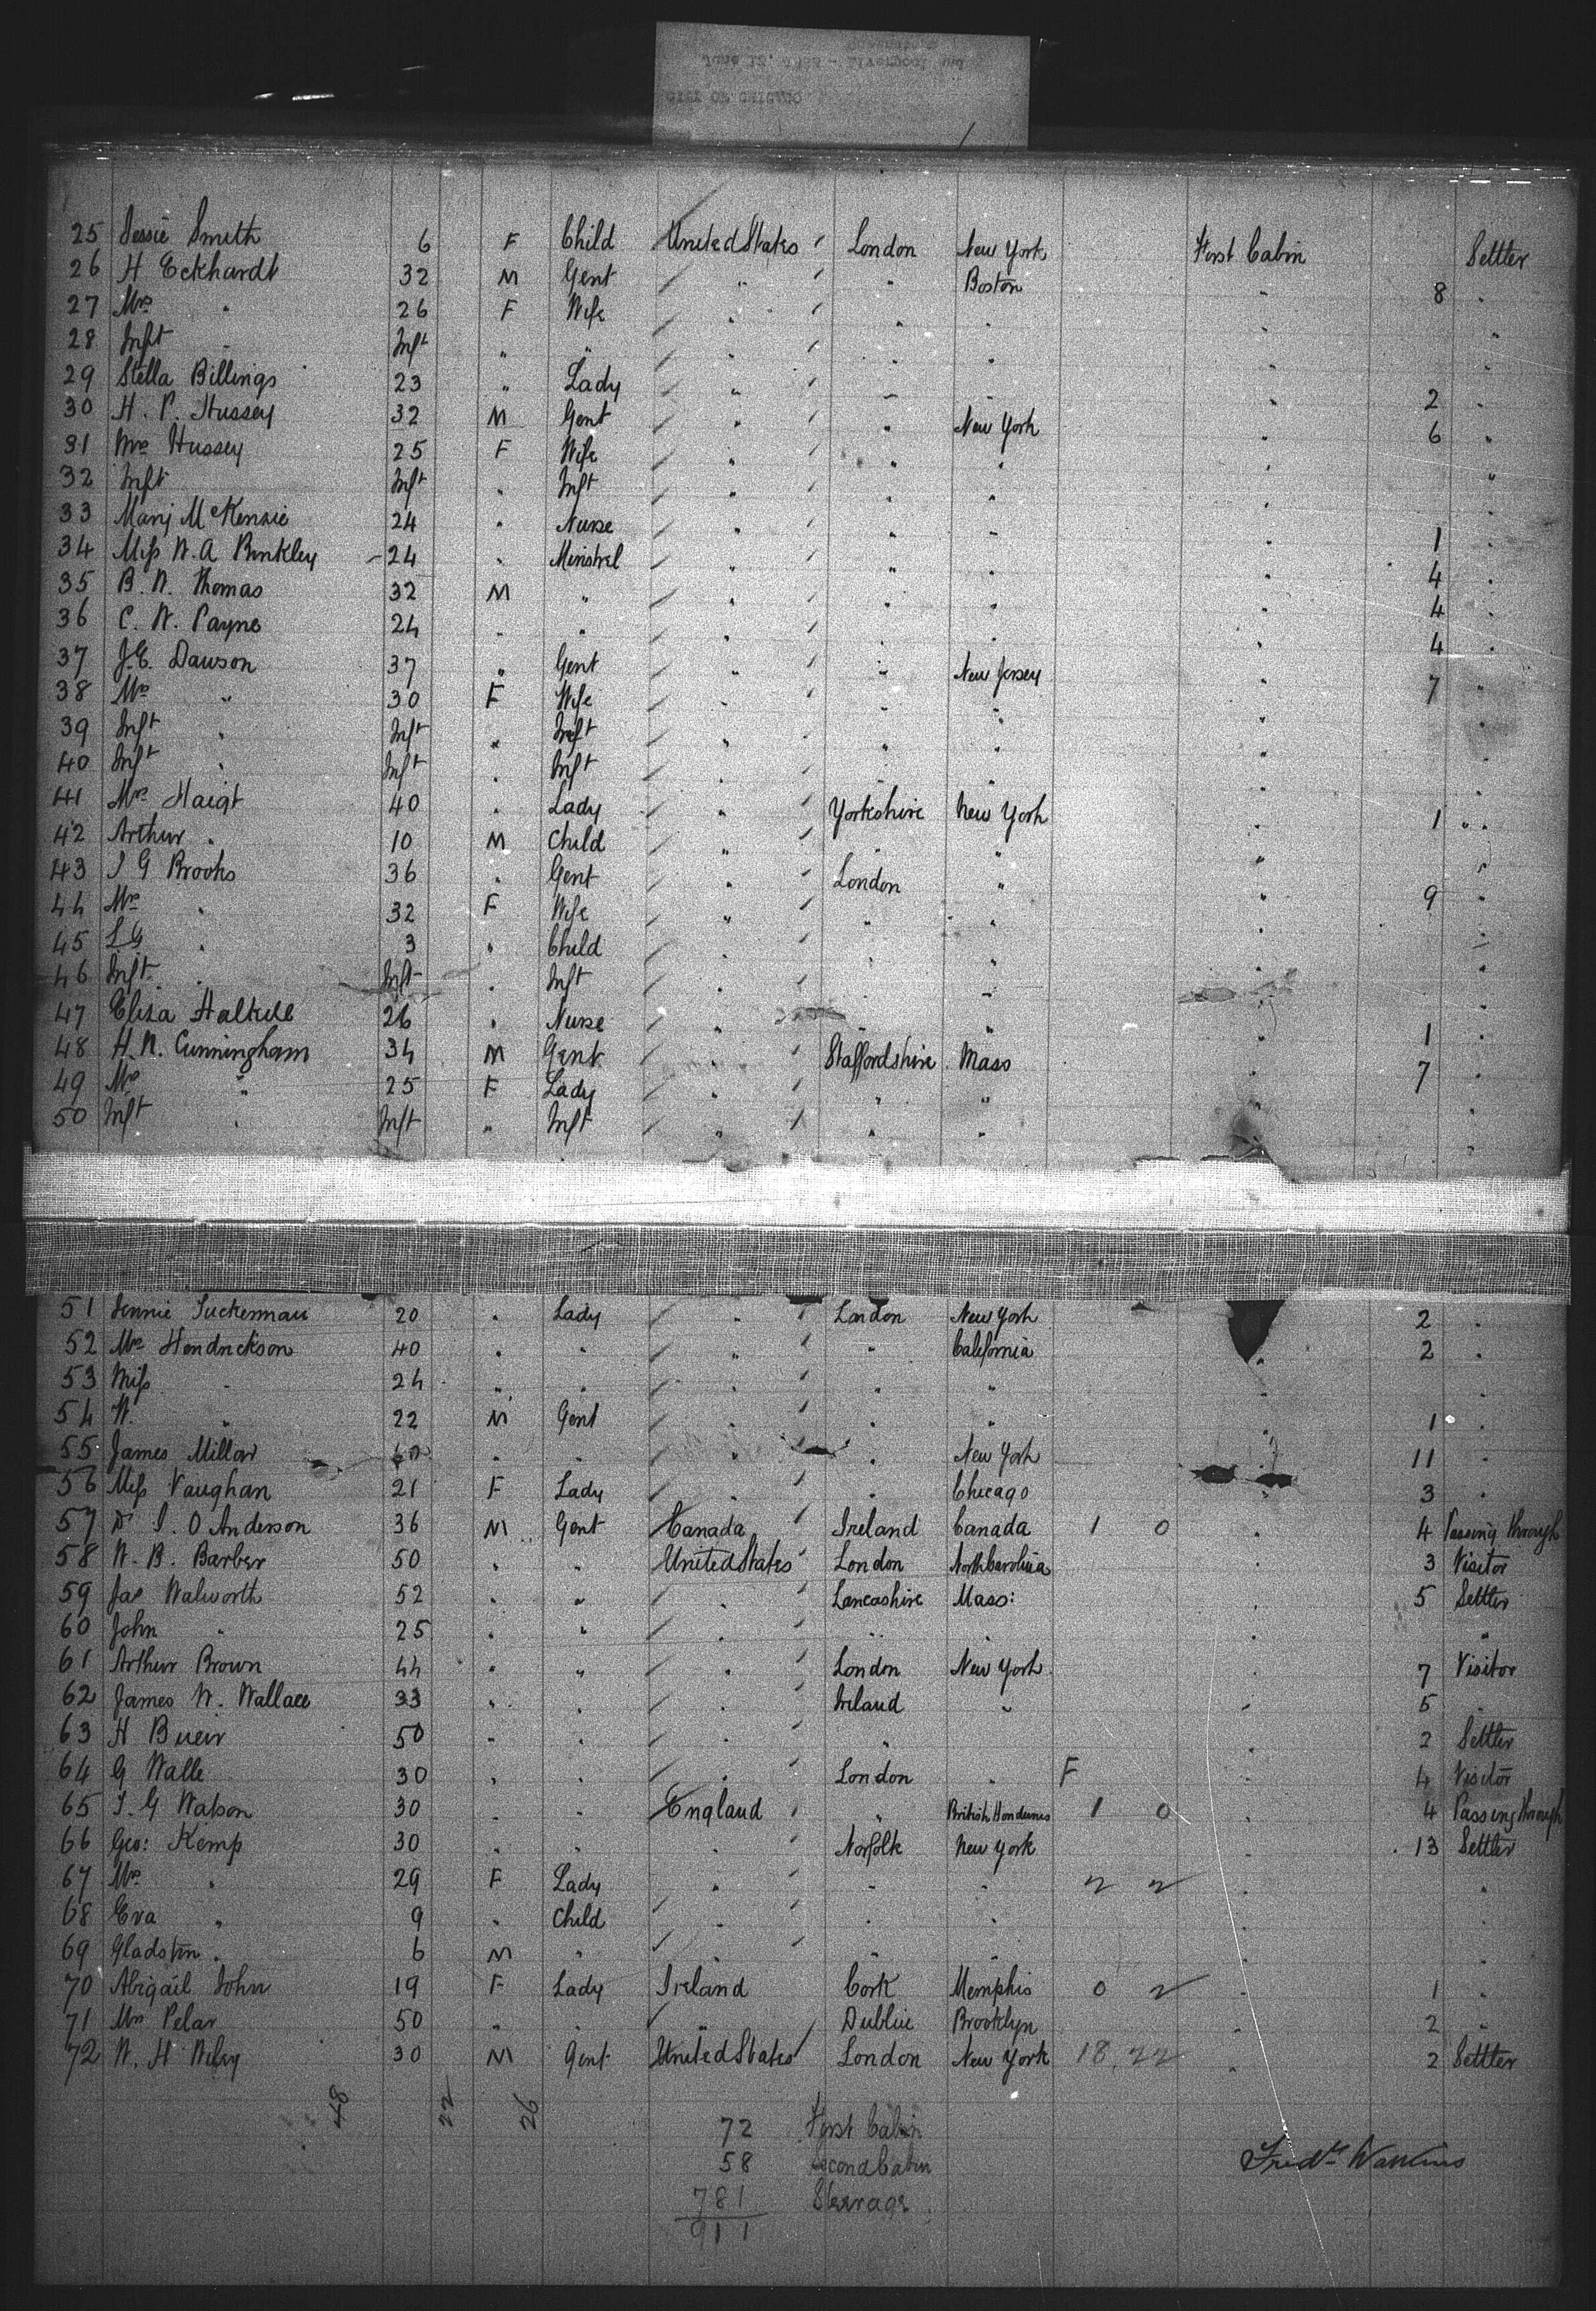 CITY OF CHICAGO
25 Jessie Smith 6 F Child United States London New York First Cabin Settler
26 H Eckhardt 32 M Gent " " Boston " 8 "
27 Mrs " 26 F Wife " " " " "
28 Inft " Inft " " " " " " "
29 Stella Billings 23 " Lady " " " " 2 "
30 H. P. Hussey 32 M Gent " " New York " 6 "
31 Mrs Hussey 25 F Wife " " " " "
32 Inft Inft " Inft " " " " "
33 Marj McKenzie 24 " Nurse " " " " 1 "
34 Miss W. A Brinkley 24 " Minstrel " " " " 4 "
35 B. W. Thomas 32 M " " " " " 4 "
36 C. W. Payne 24 " " " " " " 4 "
37 J. E. Dawson 37 " Gent " " New Jersey " 7 "
38 Mrs " 30 F Wife " " " " "
39 Inft " Inft " Inft " " " " "
40 Inft " Inft " Inft " " " " "
41 Mrs Haigt 40 " Lady " Yorkshire New York " 1 "
42 Arthur " 10 M Child " " " " "
43 J G Brooks 36 " Gent " London " " 9 "
44 Mrs " 32 F Wife " " " " "
45 L G " 3 " Child " " " " "
46 Inft " Inft " Inft " " " " "
47 Eliza 26 " Nurse " " " " 1 "
48 H. N. Cunningham 34 M Gent " Staffordshire Mass " 7 "
49 Mrs " 25 F Lady " " " " "
50 Inft " Inft " Inft " " " " "
51 Jennie Tuckerman 20 " Lady " London New York 2 "
52 Mrs Hendrickson 40 " " " " California " 2 "
53 Miss " 24 " " " " " " "
54 W. " 22 M Gent " " " " 1 "
55 James Millar " " " " New York 11 "
56 Miss Vaughan 21 F Lady " " Chicago 3 "
57 Dr J. O Anderson 36 M Gent Canada Ireland Canada 1 0 " 4 Passing through
58 W. B. Barber 50 " " United States London North Carolina " 3 Visitor
59 Jas Walworth 52 " " " Lancashire Mass: " 5 Settler
60 John " 25 " " " " " " "
61 Arthur Brown 44 " " " London New York " 7 Visitor
62 James W. Wallace 33 " " " Ireland " " 5 "
63 H 50 " " " " " " 2 Settler
64 G Walle 30 " " " London " F " 4 Visitor
65 J. G Watson 30 " " England " British Honduras 1 0 " 4 Passing through
66 Geo: Kemp 30 " " " Norfolk New York " 13 Settler
67 Mrs " 29 F Lady " " " 2 2 " "
68 Eva " 9 " Child " " " " "
69 Gladstn " 6 M " " " " " "
70 Abigail John 19 F Lady Ireland Cork Memphis 0 2 " 1 "
71 Mrs Pelar 50 " " " Dublin Brooklyn " 2 "
72 W. H Wiley 30 M Gent United States London New York 18 22 " 2 Settler
48 22 26
72 First Cabin
58 Second Cabin
781 Steerage
911
Fredk Watkins